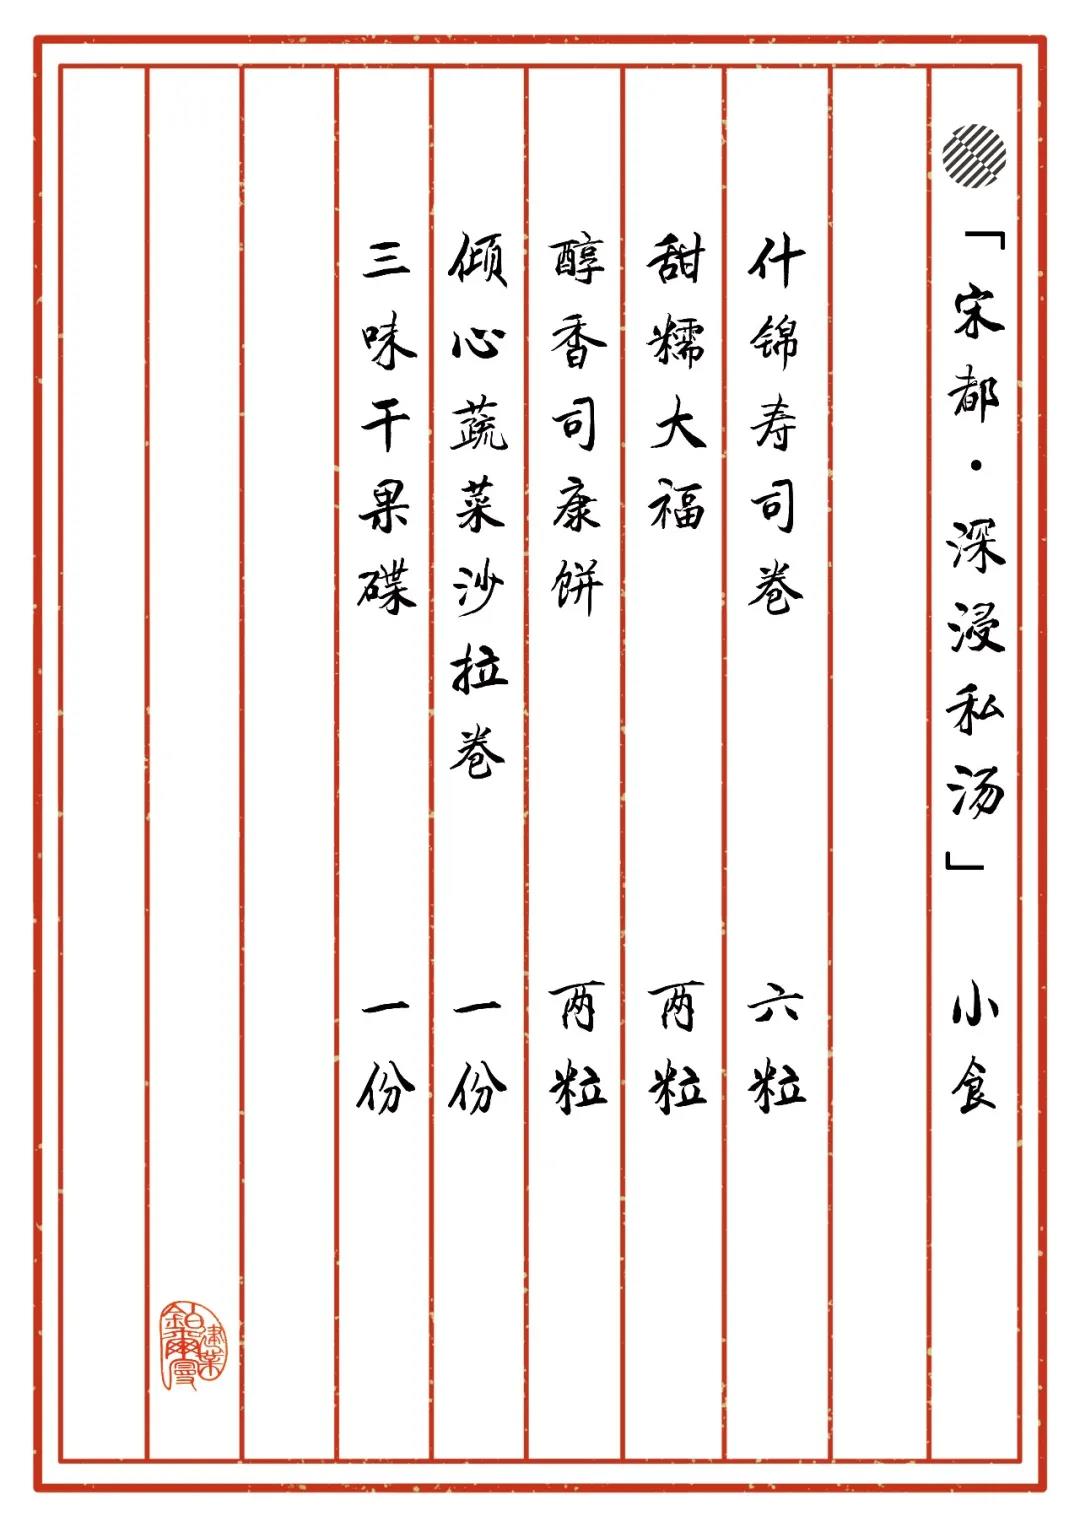 「宋都·深浸私汤」 小食
什锦寿司卷 六粒
甜糯大福 两粒
醇香司康饼 两粒
倾心蔬菜沙拉卷 一份
三味干果碟 一份
建业
铂尔曼